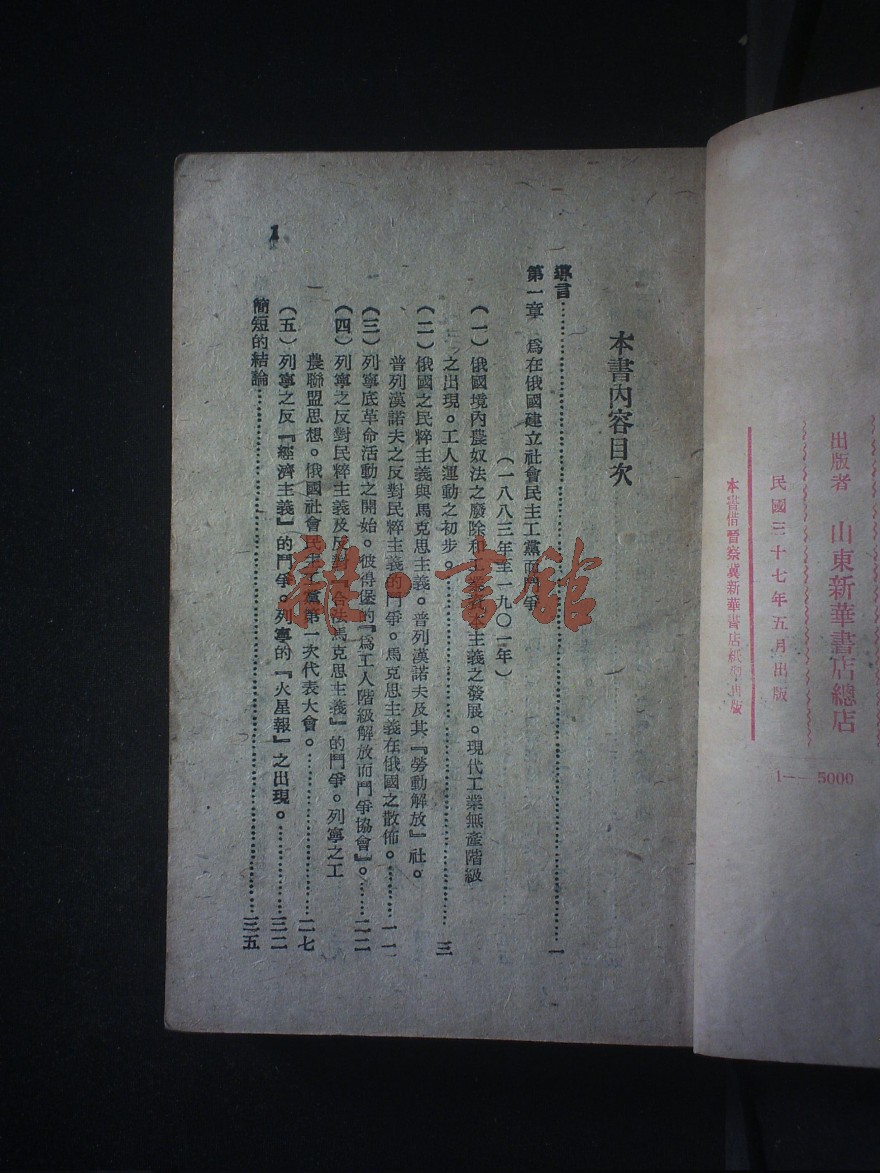 出版者 山東新華書店總店
民國三十七年五月出版
本書借晉察冀新華書店紙型出版
1—5000
本書內容目次
導言……一
第一章 爲在俄國建立社會民主工黨而鬥爭
(一八八三年至一九〇一年)
(一)俄國境內農奴法之廢除和工業資本主義之發展。現代工業無產階級
之出現。工人運動之初步。……三
(二)俄國之民粹主義與馬克思主義。普列漢諾夫及其『勞動解放』社。
普列漢諾夫之反對民粹主義的鬥爭。馬克思主義在俄國之散佈。……一一
(三)列寧底革命活動之開始。彼得堡的『爲工人階級解放而鬥爭協會』。……二二
(四)列寧之反對民粹主義及反對『合法馬克思主義』的鬥爭。列寧之工
農聯盟思想。俄國社會民主工黨第一次代表大會。……二七
(五)列寧之反『經濟主義』的鬥爭。列寧的『火星報』之出現。……三二
簡短的結論……三五
1
雜·書館